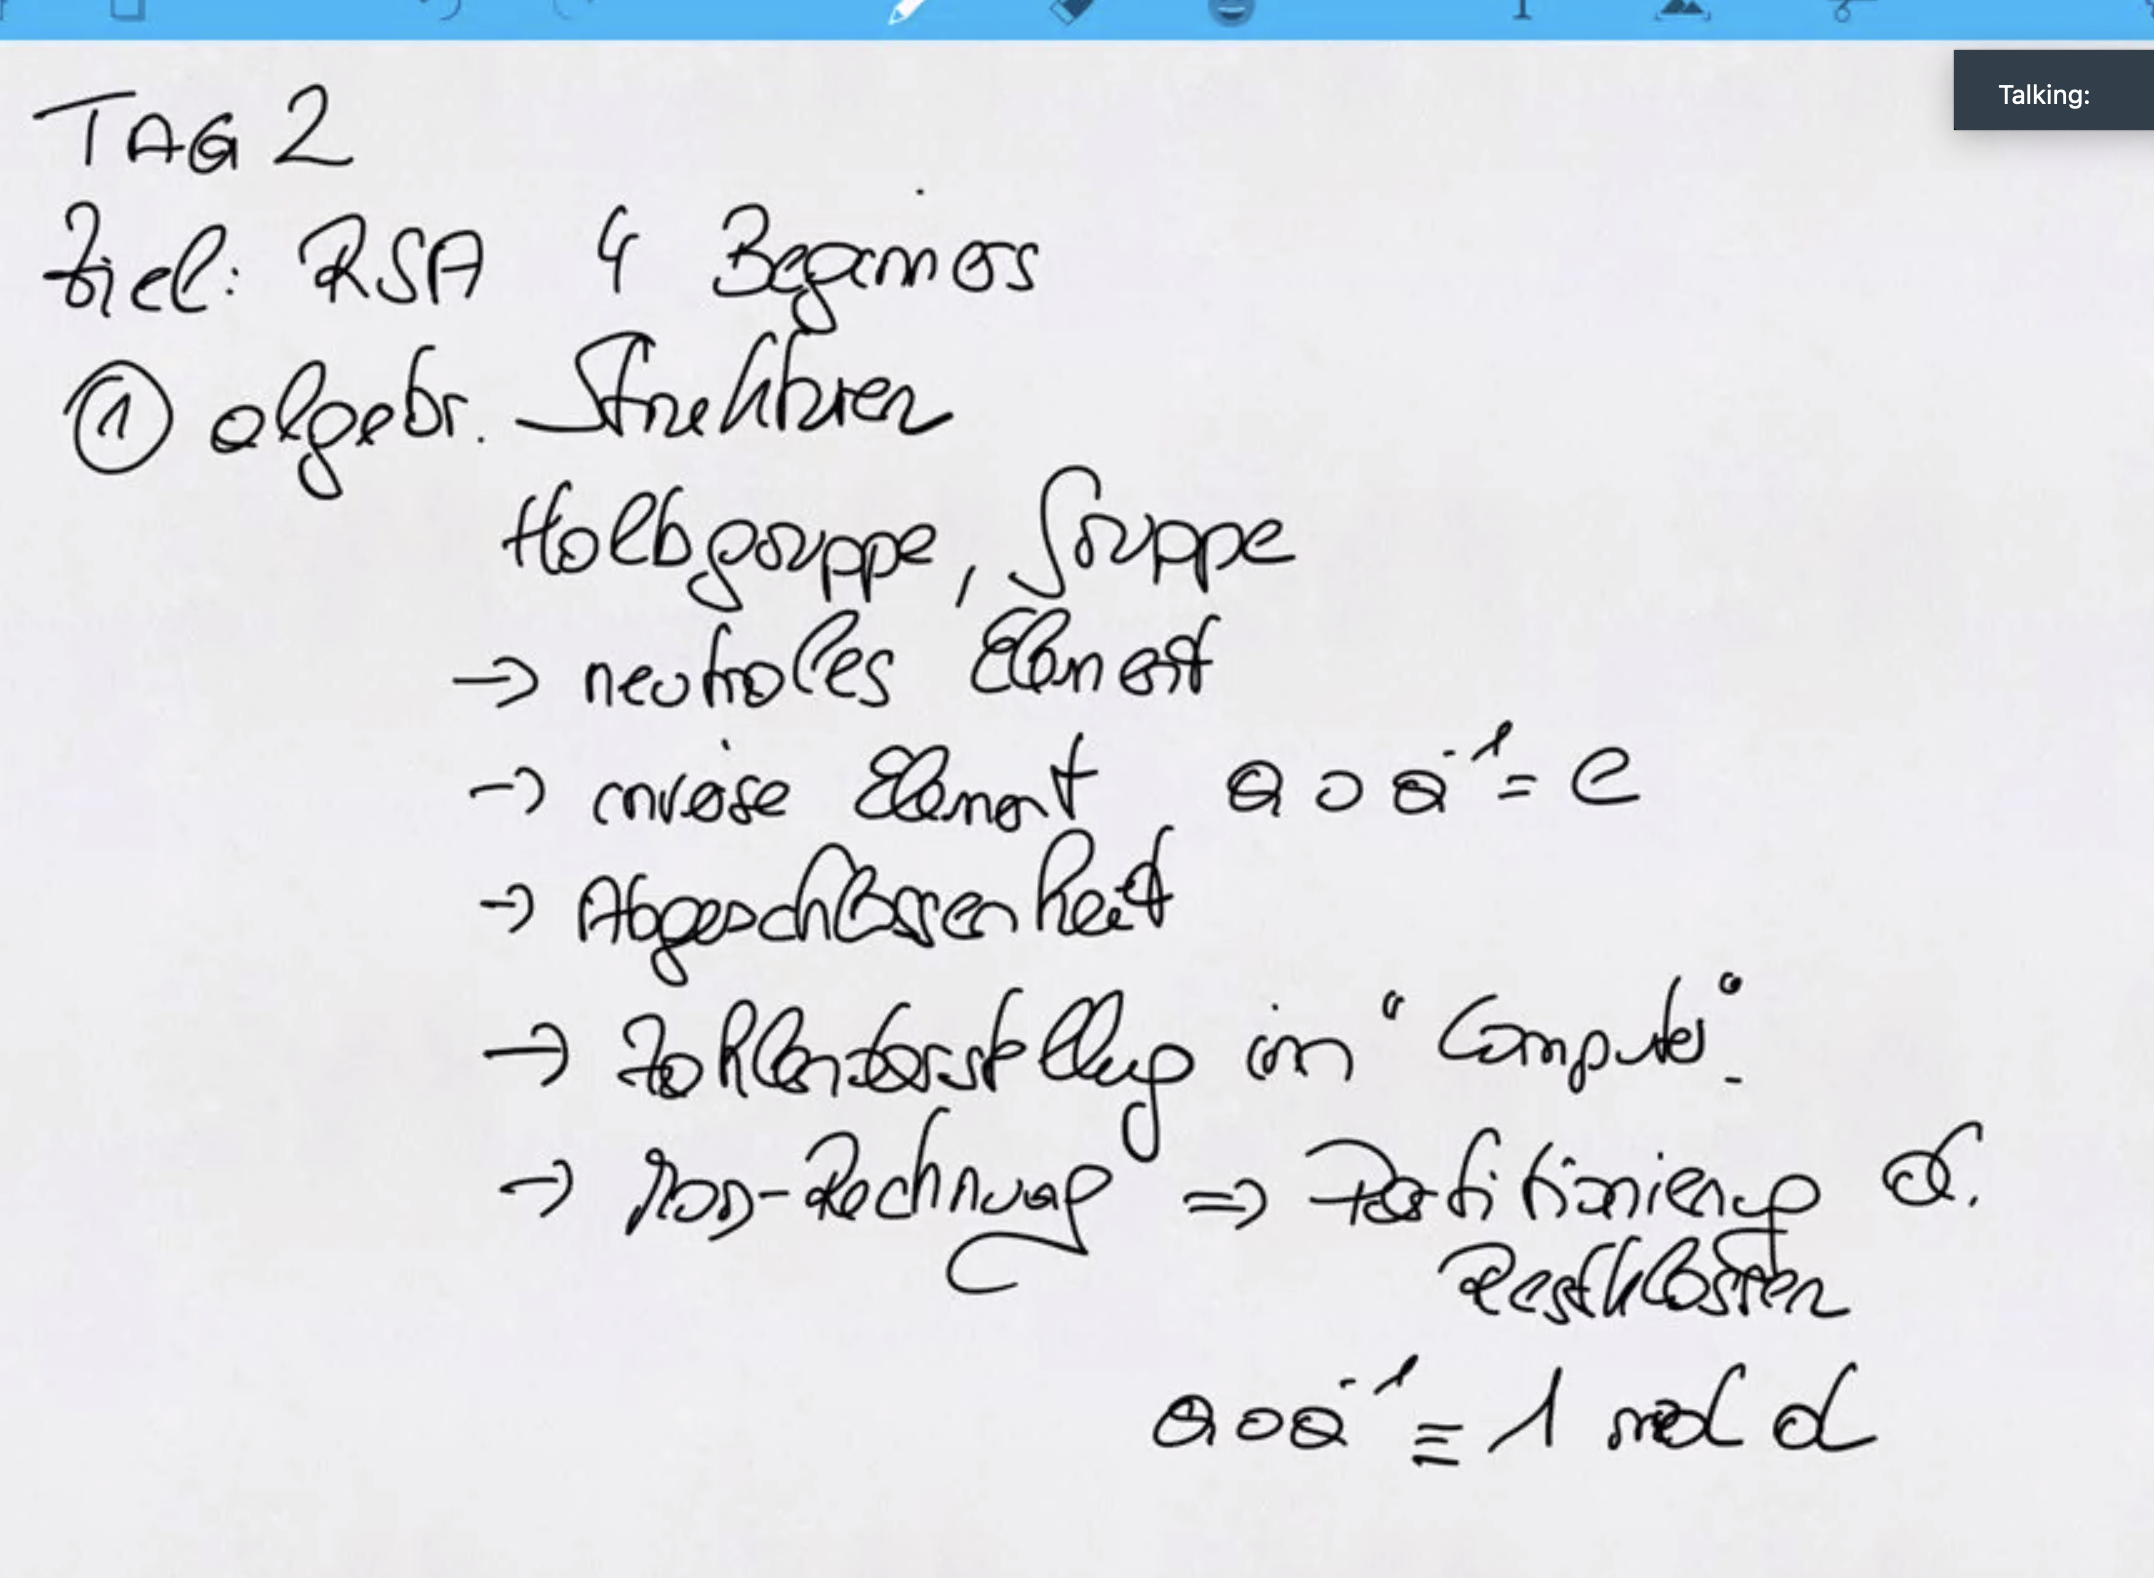 Talking:
TAG 2
Ziel: RSA 4 Beginners
① algebr. Strukturen
Halbgruppe, Gruppe
→ neutrales Element
→ inverse Element a ∘ a⁻¹ = e
→ Abgeschlossenheit
→ Zahlendarstellung im "Computer".
→ MOD-Rechnung ⇒ Partitionierung d.
Restklassen
a ∘ a⁻¹ ≡ 1 mod d